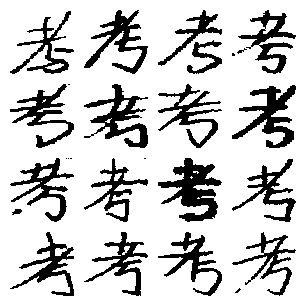 考考考考
考考考考
考考考考
考考考考